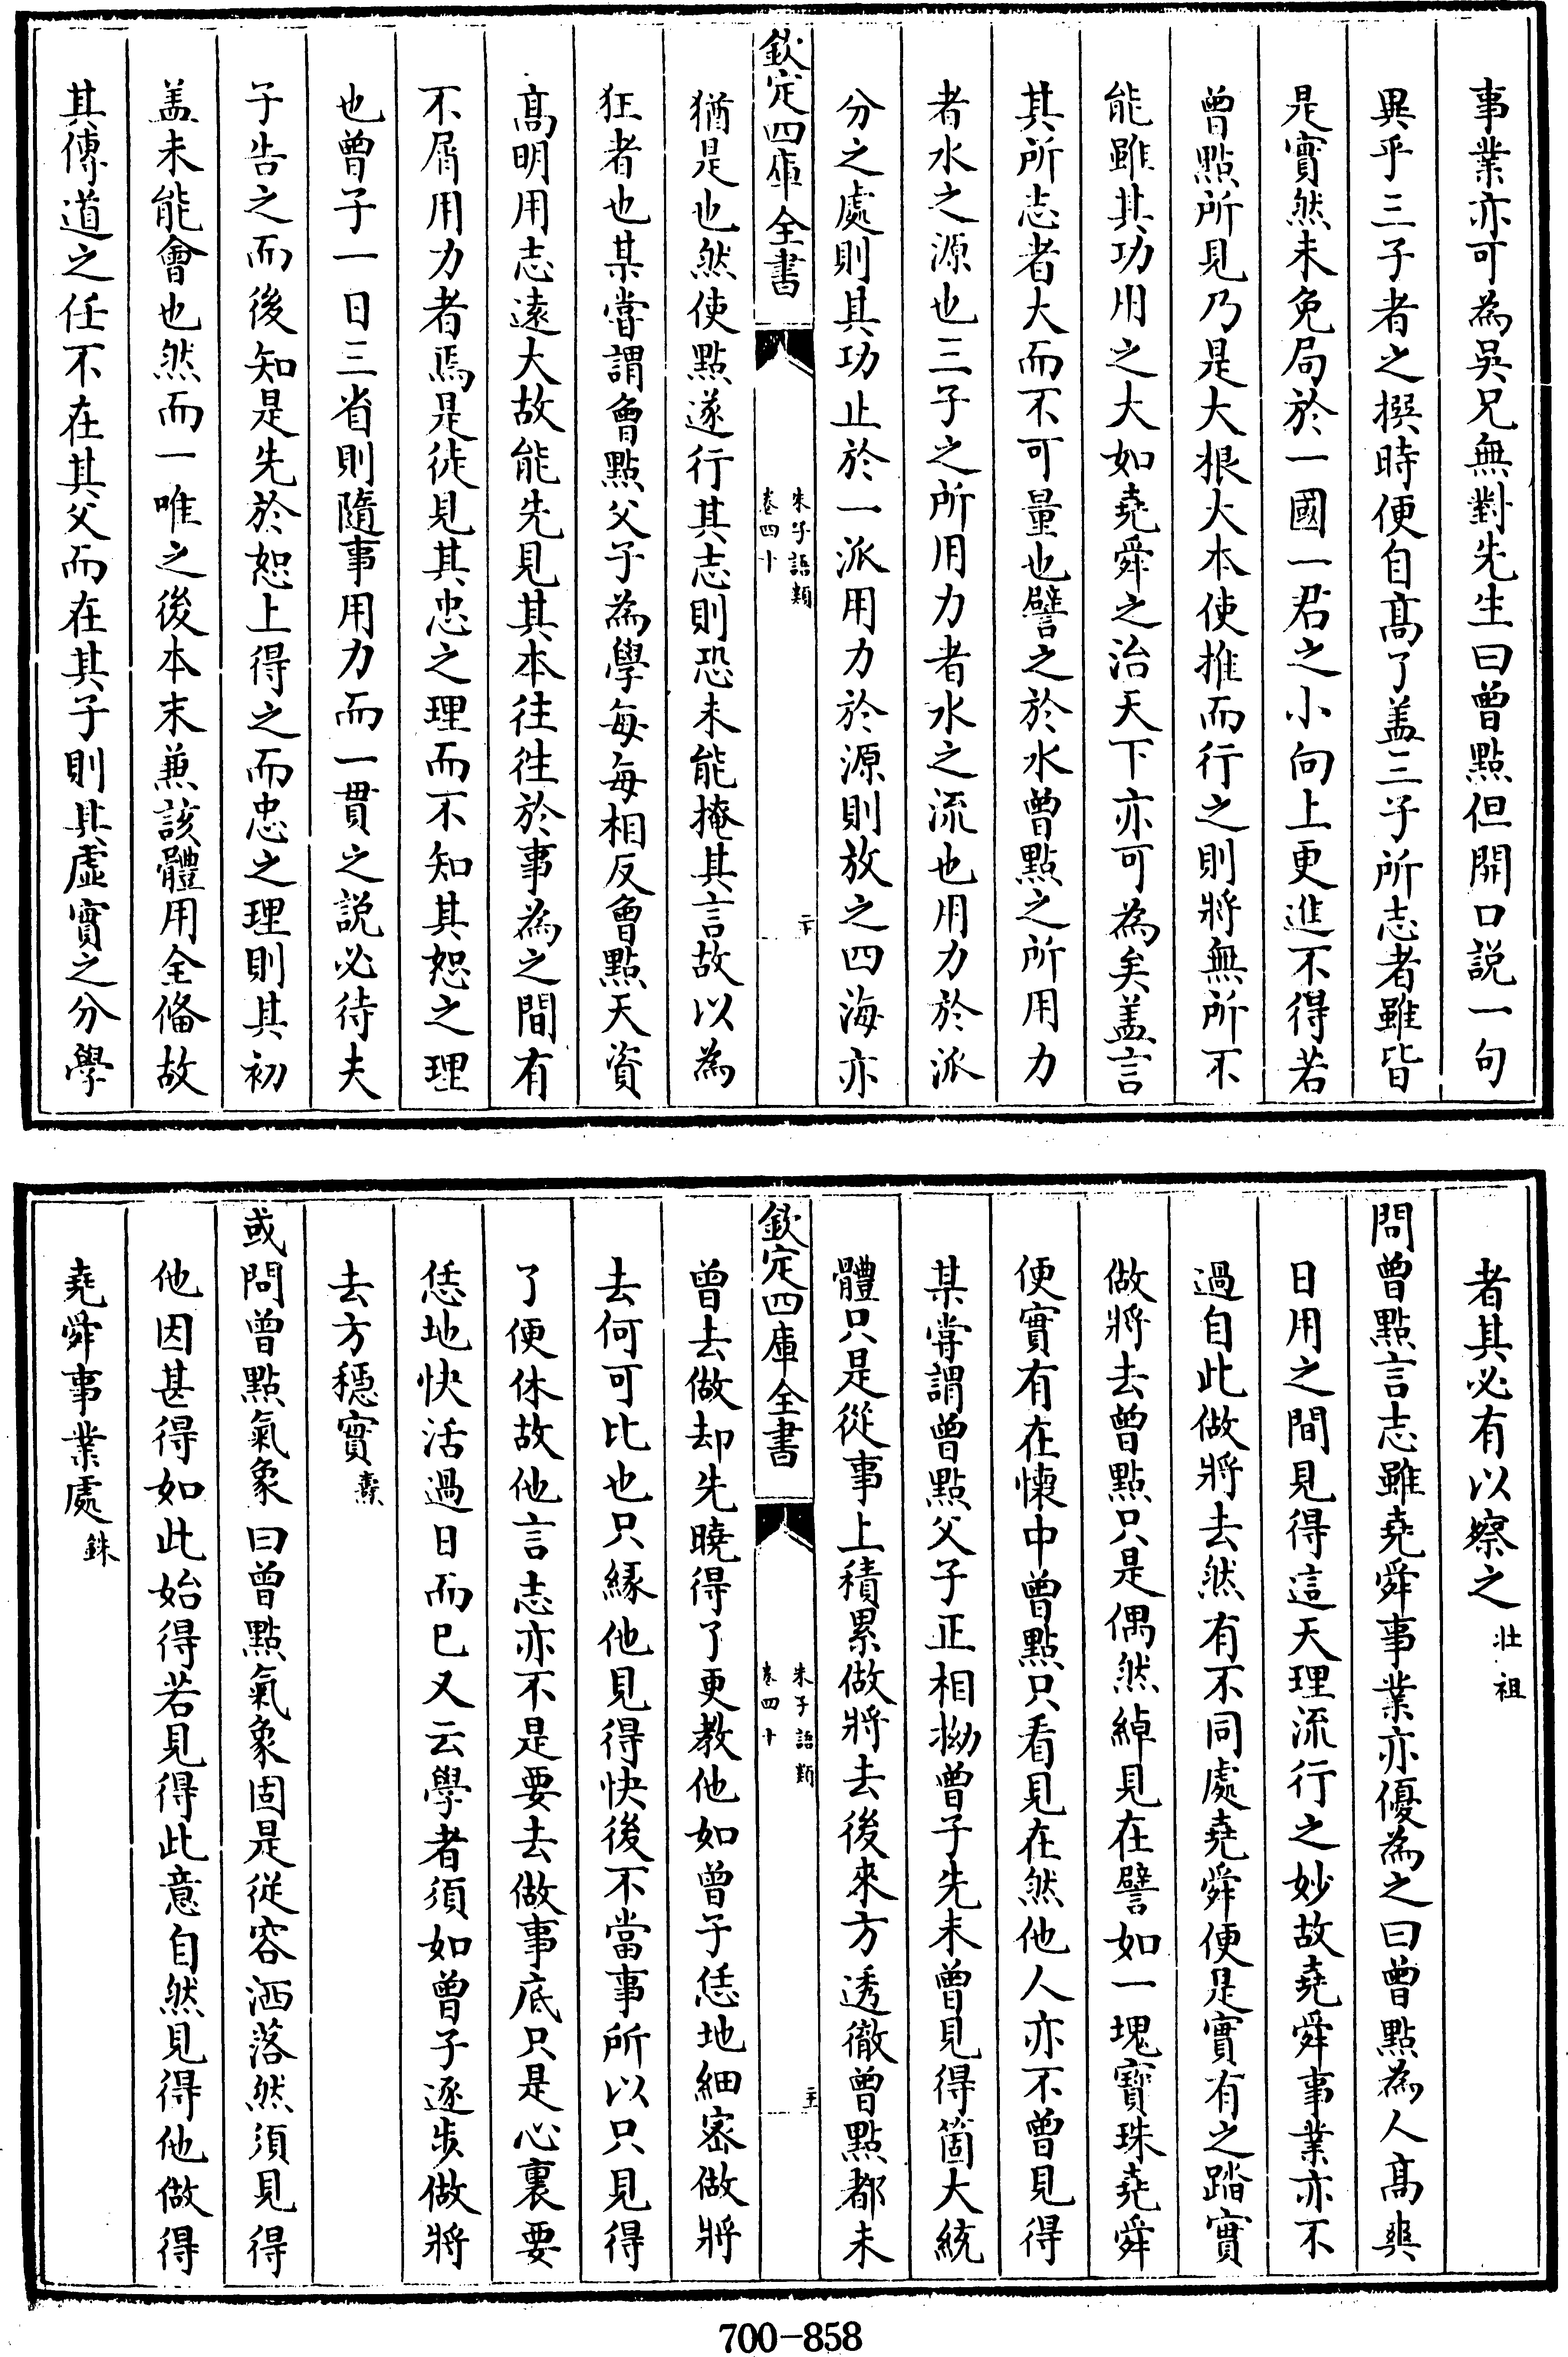 事業亦可為吳兄無對先生曰曾點但開口說一句
異乎三子者之撰時便自高了盖三子所志者雖皆
是實然未免局於一國一君之小向上更進不得若
曾點所見乃是大根大本使推而行之則將無所不
能雖其功用之大如堯舜之治天下亦可為矣盖言
其所志者大而不可量也譬之於水曾點之所用力
者水之源也三子之所用力者水之流也用力於派
分之處則其功止於一派用力於源則放之四海亦
欽定四庫全書
朱子語類
卷四十
二十
猶是也然使點遂行其志則恐未能掩其言故以為
狂者也某嘗謂曾點父子為學每每相反曾點天資
高明用志遠大故能先見其本往往於事為之間有
不屑用力者焉是徒見其忠之理而不知其恕之理
也曾子一日三省則隨事用力而一貫之說必待夫
子告之而後知是先於恕上得之而忠之理則其初
盖未能會也然而一唯之後本末兼該體用全備故
其傳道之任不在其父而在其子則其虛實之分學
者其必有以察之壯祖
問曾點言志雖堯舜事業亦優為之曰曾點為人高爽
日用之間見得這天理流行之妙故堯舜事業亦不
過自此做將去然有不同處堯舜便是實有之踏實
做將去曾點只是偶然綽見在譬如一塊寶珠堯舜
便實有在懷中曾點只看見在然他人亦不曾見得
某嘗謂曾點父子正相拗曾子先未曾見得箇大統
體只是從事上積累做將去後來方透徹曾點都未
欽定四庫全書
朱子語類
卷四十
二十一
曾去做却先曉得了更教他如曾子恁地細密做將
去何可比也只緣他見得快後不當事所以只見得
了便休故他言志亦不是要去做事底只是心裏要
恁地快活過日而已又云學者須如曾子逐步做將
去方穩實燾
或問曾點氣象曰曾點氣象固是從容洒落然須見得
他因甚得如此始得若見得此意自然見得他做得
堯舜事業處銖
700-858